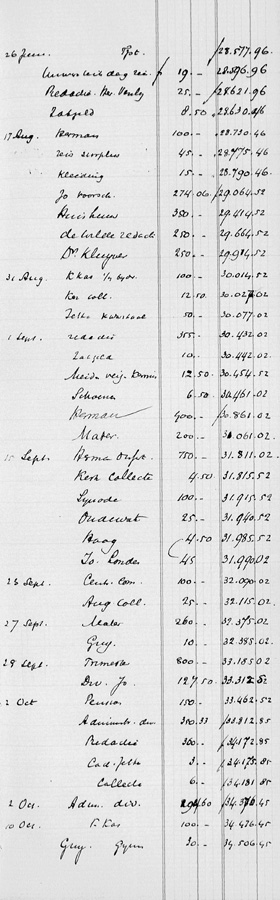 26 Juni. Tpt. 28.577.96.
19.- 28.596.96
Redactie 25.- 28621.96
Zakgeld 8.50 28.630.46
17 Aug. Herman 100.- 28.730.46
45.- 28.775.46
Kleeding 15.- 28.790.46
Jo voorsch. 274.06 29.064.52
Huishuur 350.- 29.414.52
de Wilde redact. 250.- 29.664.52
Dr Kluyver 250.- 29.914.52
31 Aug. Kkas 100.- 30.014.52
Ker coll. 12.50. 30.027.02
50.- 30.077.02
1 Sept. redactie 355.- 30.432.02
10.- 30.442.02
Meida verj. Kermis 12.50. 30.454.52
Schoenen 6.50 30.461.02
Herman 400.- 30.861.02
Mater. 200.- 31.061.02
15 Sept. Herman 750.- 31.811.02
Kerk Collecte 4.50 31.815.52
Synode 100.- 31.915.52
Oudewat 25.- 31.940.52
Haag 4.50 31.985.52
Jo. Londen 45 31.990.02
23 Sept. Centr. Com. 100.- 32.090.02
Aug Coll. 25.- 32.115.02
27 Sept. Mater 260.- 32.375.02
Guy. 10.- 32.385.02.
28 Sept. Trimester 800.- 33.185.02
Div. Jo. 127.50 33.312.52
2 Oct Pension 150- 33.462.52
Administr. div. 350.33 33.812.85
Redactie 360.- 34172.85
Cad. Jetta 3.- 34.175.85
Collecte 6.- 34.181.85
2 Oct. Adm. div. 194.60 34.376.45
10 Oct. F. Kas 100.- 34.476.45
Guy. Gymn 30.- 34.506.45